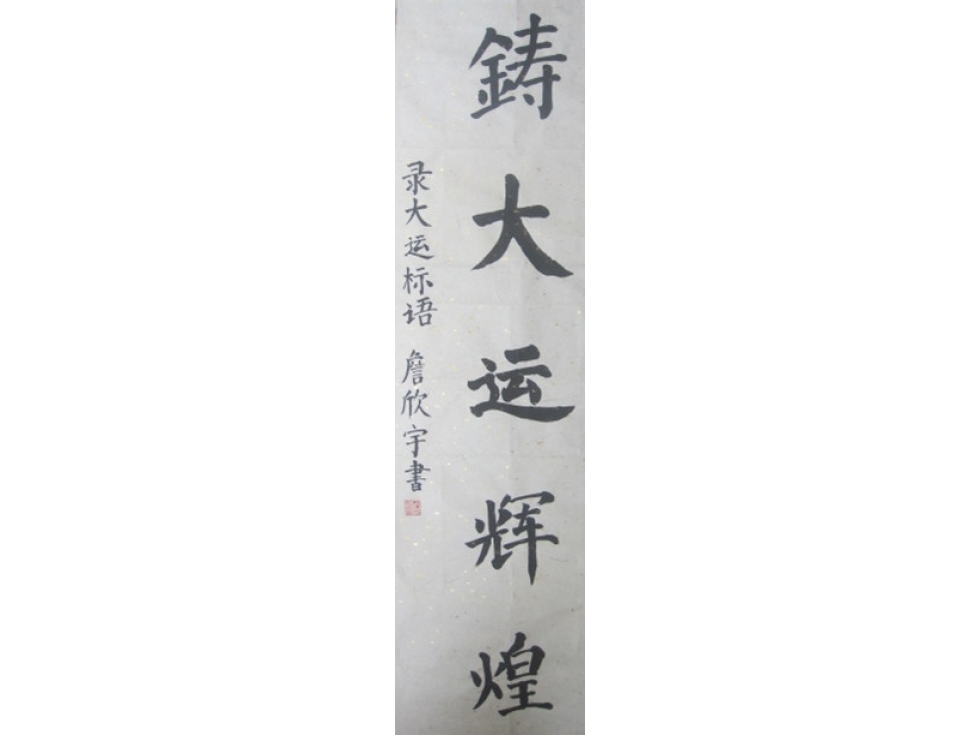 鋳大运辉煌
录大运标语 詹欣宇書